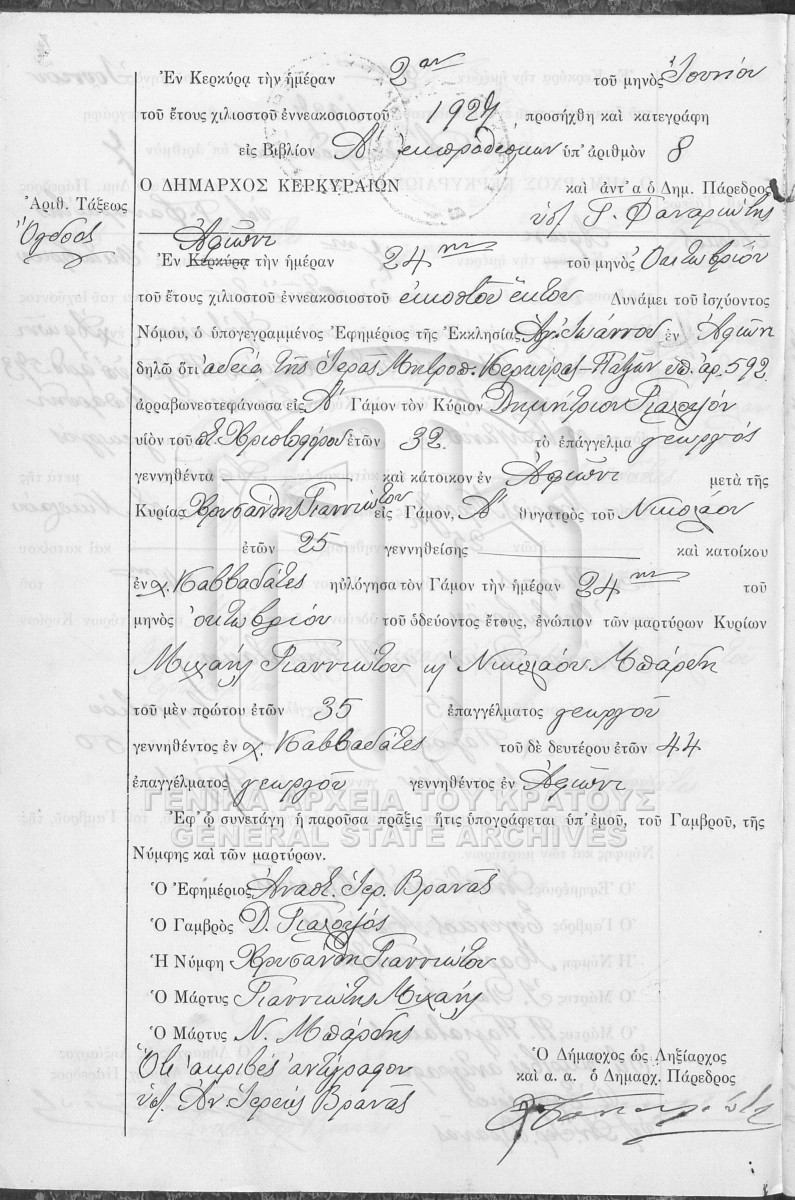 Ἐν Κερκύρᾳ τὴν ἡμέραν 2αν τοῦ μηνὸς Ἰουνίου
τοῦ ἔτους χιλιοστοῦ ἐννεακοσιοστοῦ 1927 προσήχθη καὶ κατεγράφη
εἰς Βιβλίον Α' ἐκπροθέσμων ὑπ' ἀριθμὸν 8
Ο ΔΗΜΑΡΧΟΣ ΚΕΡΚΥΡΑΙΩΝ καὶ ἀντ' α ὁ Δημ. Πάρεδρος
Ἀριθ. Τάξεως
Ὄγδοος
ὑπ. Γ. Φαναριώτης
Ἀφιῶνι
Ἐν Κερκύρᾳ τὴν ἡμέραν 24ην τοῦ μηνὸς Ὀκτωβρίου
τοῦ ἔτους χιλιοστοῦ ἐννεακοσιοστοῦ εἰκοστοῦ ἕκτου Δυνάμει τοῦ ἰσχύοντος
Νόμου, ὁ ὑπογεγραμμένος Ἐφημέριος τῆς Ἐκκλησίας Ἁγ. Ἰωάννου ἐν Ἀφιῶνι
δηλῶ ὅτι ἀδείᾳ τῆς Ἱερᾶς Μητροπ. Κερκύρας-Παξῶν ὑπ. ἀρ. 592
ἀρραβωνεστεφάνωσα εἰς Α' Γάμον τὸν Κύριον Δημήτριον
υἱὸν τοῦ Χριστοφόρου ἐτῶν 32 τὸ ἐπάγγελμα γεωργὸς
γεννηθέντα καὶ κάτοικον ἐν Ἀφιῶνι μετὰ τῆς
Κυρίας Χρυσάνθης Γιαννιώτου εἰς Γάμον, Α' θυγατρὸς τοῦ Νικολάου
ἐτῶν 25 γεννηθείσης καὶ κατοίκου
ἐν χ. Καββαδάτες ηὐλόγησα τὸν Γάμον τὴν ἡμέραν 24ην τοῦ
μηνὸς ὀκτωβρίου τοῦ ὁδεύοντος ἔτους, ἐνώπιον τῶν μαρτύρων Κυρίων
Μιχαὴλ Γιαννιώτου κ' Νικολάου Μπάρδη
τοῦ μὲν πρώτου ἐτῶν 35 ἐπαγγέλματος γεωργοῦ
γεννηθέντος ἐν χ. Καββαδάτες τοῦ δὲ δευτέρου ἐτῶν 44
ἐπαγγέλματος γεωργοῦ γεννηθέντος ἐν Ἀφιῶνι
ΓΕΝΙΚΑ ΑΡΧΕΙΑ ΤΟΥ ΚΡΑΤΟΥΣ
GENERAL STATE ARCHIVES
Ἐφ' ᾧ συνετάγη ἡ παροῦσα πρᾶξις ἥτις ὑπογράφεται ὑπ' ἐμοῦ, τοῦ Γαμβροῦ, τῆς
Νύμφης καὶ τῶν μαρτύρων.
Ὁ Ἐφημέριος Ἀναστ. Ἱερ. Βρανᾶς
Ὁ Γαμβρὸς Δ.
Ἡ Νύμφη Χρυσάνθη Γιαννιώτου
Ὁ Μάρτυς Γιαννιώτης Μιχαὴλ
Ὁ Μάρτυς Ν. Μπάρδης
Ὅτι ἀκριβὲς ἀντίγραφον
ὑπ. Ἀν Ἱερεὺς Βρανᾶς
Ὁ Δήμαρχος ὡς Ληξίαρχος
καὶ α. α. ὁ Δημαρχ. Πάρεδρος